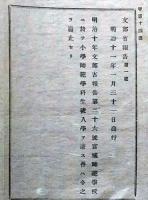 文部省報告第一號
明治十一年一月三十一日發行
明治十年文部省報告第二十六號宮城師範學校
ニ於テ小學師範學科生徒入學ノ
ヲ廢止セリ